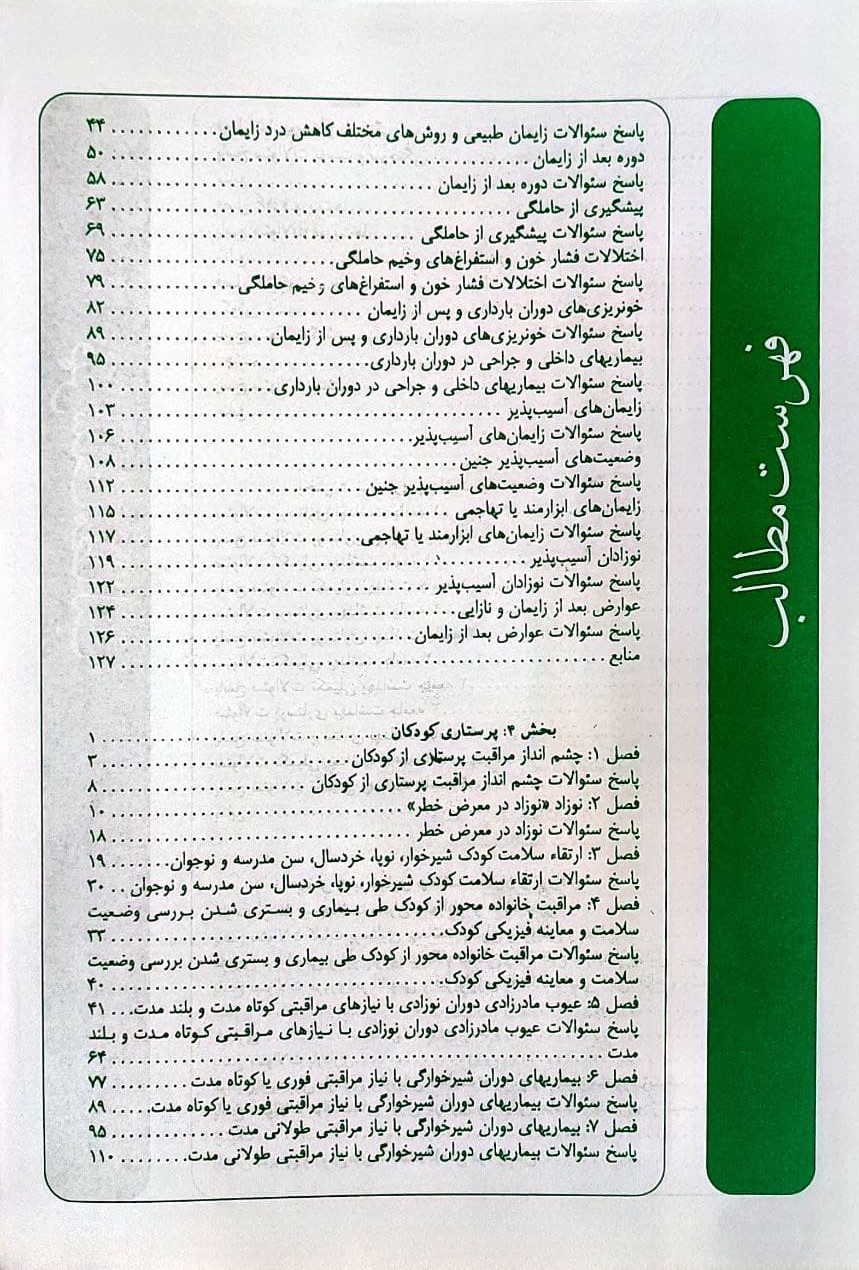 فهرست مطالب
پاسخ سئوالات زایمان طبیعی و روش‌های مختلف کاهش درد زایمان ............ ۴۴
دوره بعد از زایمان ............ ۵۰
پاسخ سئوالات دوره بعد از زایمان ............ ۵۸
پیشگیری از حاملگی ............ ۶۳
پاسخ سئوالات پیشگیری از حاملگی ............ ۶۹
اختلالات فشار خون و استفراغ‌های وخیم حاملگی ............ ۷۵
پاسخ سئوالات اختلالات فشار خون و استفراغ‌های وخیم حاملگی ............ ۷۹
خونریزی‌های دوران بارداری و پس از زایمان ............ ۸۲
پاسخ سئوالات خونریزی‌های دوران بارداری و پس از زایمان ............ ۸۹
بیماریهای داخلی و جراحی در دوران بارداری ............ ۹۵
پاسخ سئوالات بیماریهای داخلی و جراحی در دوران بارداری ............ ۱۰۰
زایمان‌های آسیب‌پذیر ............ ۱۰۳
پاسخ سئوالات زایمان‌های آسیب‌پذیر ............ ۱۰۶
وضعیت‌های آسیب‌پذیر جنین ............ ۱۰۸
پاسخ سئوالات وضعیت‌های آسیب‌پذیر جنین ............ ۱۱۲
زایمان‌های ابزارمند یا تهاجمی ............ ۱۱۵
پاسخ سئوالات زایمان‌های ابزارمند یا تهاجمی ............ ۱۱۷
نوزادان آسیب‌پذیر ............ ۱۱۹
پاسخ سئوالات نوزادان آسیب‌پذیر ............ ۱۲۲
عوارض بعد از زایمان و نازایی ............ ۱۲۴
پاسخ سئوالات عوارض بعد از زایمان ............ ۱۲۶
منابع ............ ۱۲۷
بخش ۴: پرستاری کودکان ............ ۱
فصل ۱: چشم انداز مراقبت پرستاری از کودکان ............ ۳
پاسخ سئوالات چشم انداز مراقبت پرستاری از کودکان ............ ۸
فصل ۲: نوزاد «نوزاد در معرض خطر» ............ ۱۰
پاسخ سئوالات نوزاد در معرض خطر ............ ۱۸
فصل ۳: ارتقاء سلامت کودک شیرخوار، نوپا، خردسال، سن مدرسه و نوجوان ........ ۱۹
پاسخ سئوالات ارتقاء سلامت کودک شیرخوار، نوپا، خردسال، سن مدرسه و نوجوان .. ۳۰
فصل ۴: مراقبت خانواده محور از کودک طی بیماری و بستری شدن بررسی وضعیت
سلامت و معاینه فیزیکی کودک ............ ۳۳
پاسخ سئوالات مراقبت خانواده محور از کودک طی بیماری و بستری شدن بررسی وضعیت
سلامت و معاینه فیزیکی کودک ............ ۴۰
فصل ۵: عیوب مادرزادی دوران نوزادی با نیازهای مراقبتی کوتاه مدت و بلند مدت ... ۴۱
پاسخ سئوالات عیوب مادرزادی دوران نوزادی با نیازهای مراقبتی کوتاه مدت و بلند
مدت ............ ۶۴
فصل ۶: بیماریهای دوران شیرخوارگی با نیاز مراقبتی فوری یا کوتاه مدت ............ ۷۷
پاسخ سئوالات بیماریهای دوران شیرخوارگی با نیاز مراقبتی فوری یا کوتاه مدت ..... ۸۹
فصل ۷: بیماریهای دوران شیرخوارگی با نیاز مراقبتی طولانی مدت ............ ۹۵
پاسخ سئوالات بیماریهای دوران شیرخوارگی با نیاز مراقبتی طولانی مدت ........ ۱۱۰